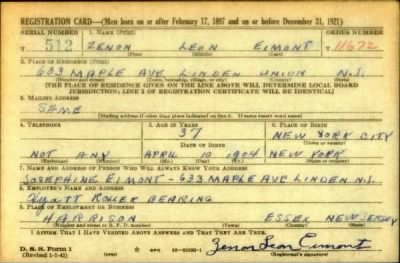 REGISTRATION CARD—(Men born on or after February 17, 1897 and on or before December 31, 1921)
SERIAL NUMBER 1. NAME (Print) ORDER NUMBER
T 512 ZENON LEON EIMONT T11672
(First) (Middle) (Last)
2. PLACE OF RESIDENCE (Print)
633 MAPLE AVE LINDEN UNION N.J.
(Number and street) (Town, township, village, or city) (County) (State)
[THE PLACE OF RESIDENCE GIVEN ON THE LINE ABOVE WILL DETERMINE LOCAL BOARD
JURISDICTION; LINE 2 OF REGISTRATION CERTIFICATE WILL BE IDENTICAL]
3. MAILING ADDRESS
SAME
[Mailing address if other than place indicated on line 2. If same insert word same]
4. TELEPHONE 5. AGE IN YEARS 6. PLACE OF BIRTH
37 NEW YORK CITY
DATE OF BIRTH (Town or county)
NOT ANY APRIL 10 1904 NEW YORK
(Exchange) (Number) (Mo.) (Day) (Yr.) (State or country)
7. NAME AND ADDRESS OF PERSON WHO WILL ALWAYS KNOW YOUR ADDRESS
JOSEPHINE EIMONT - 633 MAPLE AVE LINDEN N.J.
8. EMPLOYER'S NAME AND ADDRESS
Hyatt ROLLER BEARING
9. PLACE OF EMPLOYMENT OR BUSINESS
HARRISON ESSEX NEW JERSEY
(Number and street or R. F. D. number) (Town) (County) (State)
I AFFIRM THAT I HAVE VERIFIED ABOVE ANSWERS AND THAT THEY ARE TRUE.
D. S. S. Form 1 GPO Zenon Leon Eimont
(Revised 1-1-42) (Registrant's signature)